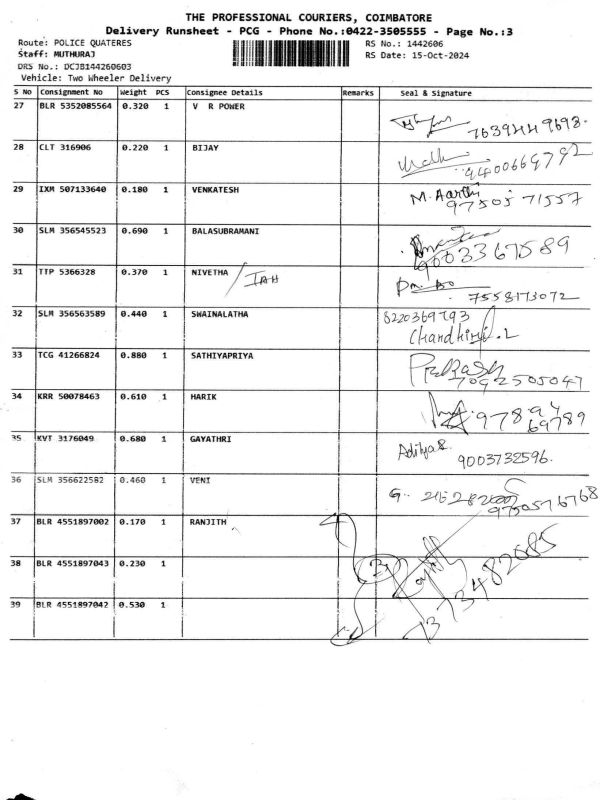 THE PROFESSIONAL COURIERS, COIMBATORE
Delivery Runsheet - PCG - Phone No.:0422-3505555 - Page No.:3
Route: POLICE QUATERES RS No.: 1442606
Staff: MUTHURAJ RS Date: 15-Oct-2024
DRS No.: DCJB144260603
Vehicle: Two Wheeler Delivery
S No Consignment No Weight PCS Consignee Details Remarks Seal & Signature
27 BLR 5352085564 0.320 1 V R POWER
7639449698.
28 CLT 316906 0.220 1 BIJAY
9400669792
29 IXM 507133640 0.180 1 VENKATESH M. Aarthi
97505 71557
30 SLM 356545523 0.690 1 BALASUBRAMANI
9003367589
31 TTP 5366328 0.370 1 NIVETHA
7558173072
32 SLM 356563589 0.440 1 SWAINALATHA 8220369793
33 TCG 41266824 0.880 1 SATHIYAPRIYA Prakash
7092505047
34 KRR 50078463 0.610 1 HARIK 97894
69789
35 KVT 3176049 0.680 1 GAYATHRI
9003732596.
36 SLM 356622582 0.460 1 VENI G.
9750576768
37 BLR 4551897002 0.170 1 RANJITH
38 BLR 4551897043 0.230 1
7373482685
39 BLR 4551897042 0.530 1